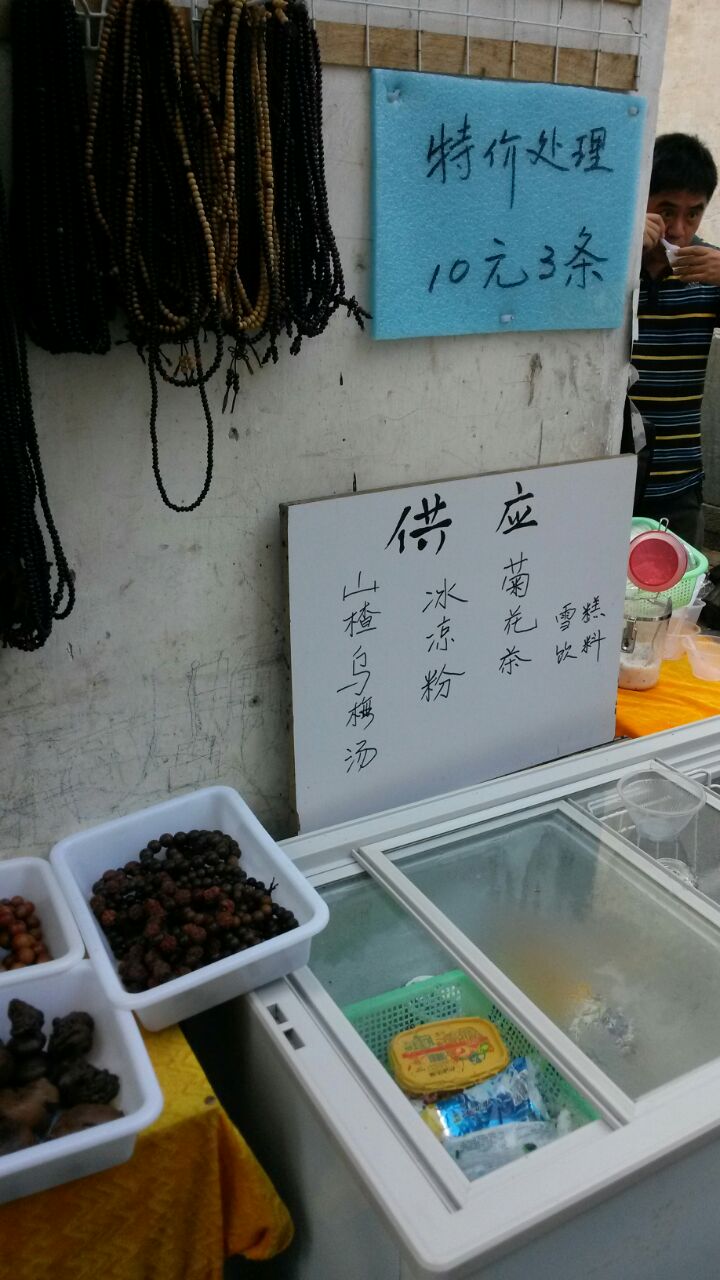 特价处理
10元3条
供应
山楂乌梅汤
冰凉粉
菊花茶
雪糕
饮料